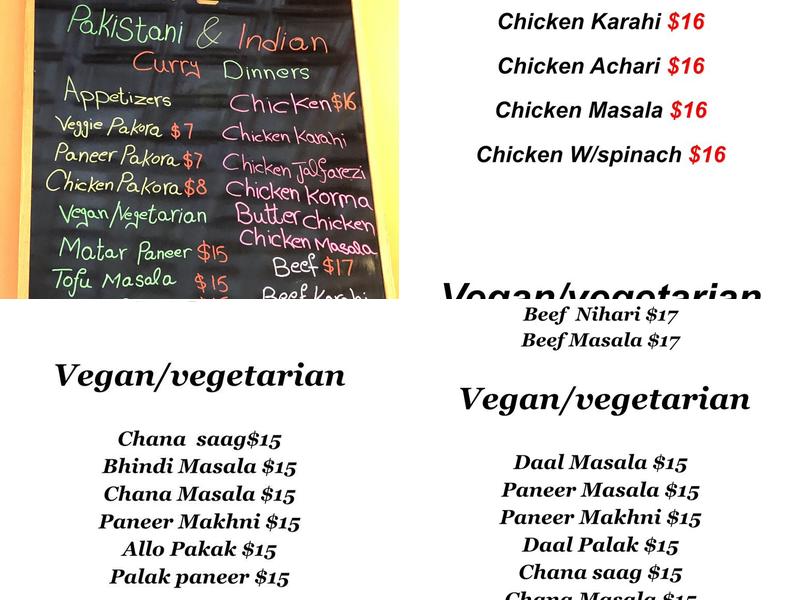 Pakistani & Indian
Curry Dinners
Appetizers
Veggie Pakora $7
Paneer Pakora $7
Chicken Pakora $8
Vegan/Vegetarian
Matar Paneer $15
Tofu Masala $15
Chicken $16
Chicken Karahi
Chicken Jalfarezi
Chicken Korma
Butter Chicken
Chicken Masala
Beef $17
Beef Karahi
Chicken Karahi $16
Chicken Achari $16
Chicken Masala $16
Chicken W/spinach $16
Vegan/vegetarian
Vegan/vegetarian
Chana saag$15
Bhindi Masala $15
Chana Masala $15
Paneer Makhni $15
Allo Pakak $15
Palak paneer $15
Beef Nihari $17
Beef Masala $17
Vegan/vegetarian
Daal Masala $15
Paneer Masala $15
Paneer Makhni $15
Daal Palak $15
Chana saag $15
Chana Masala $15